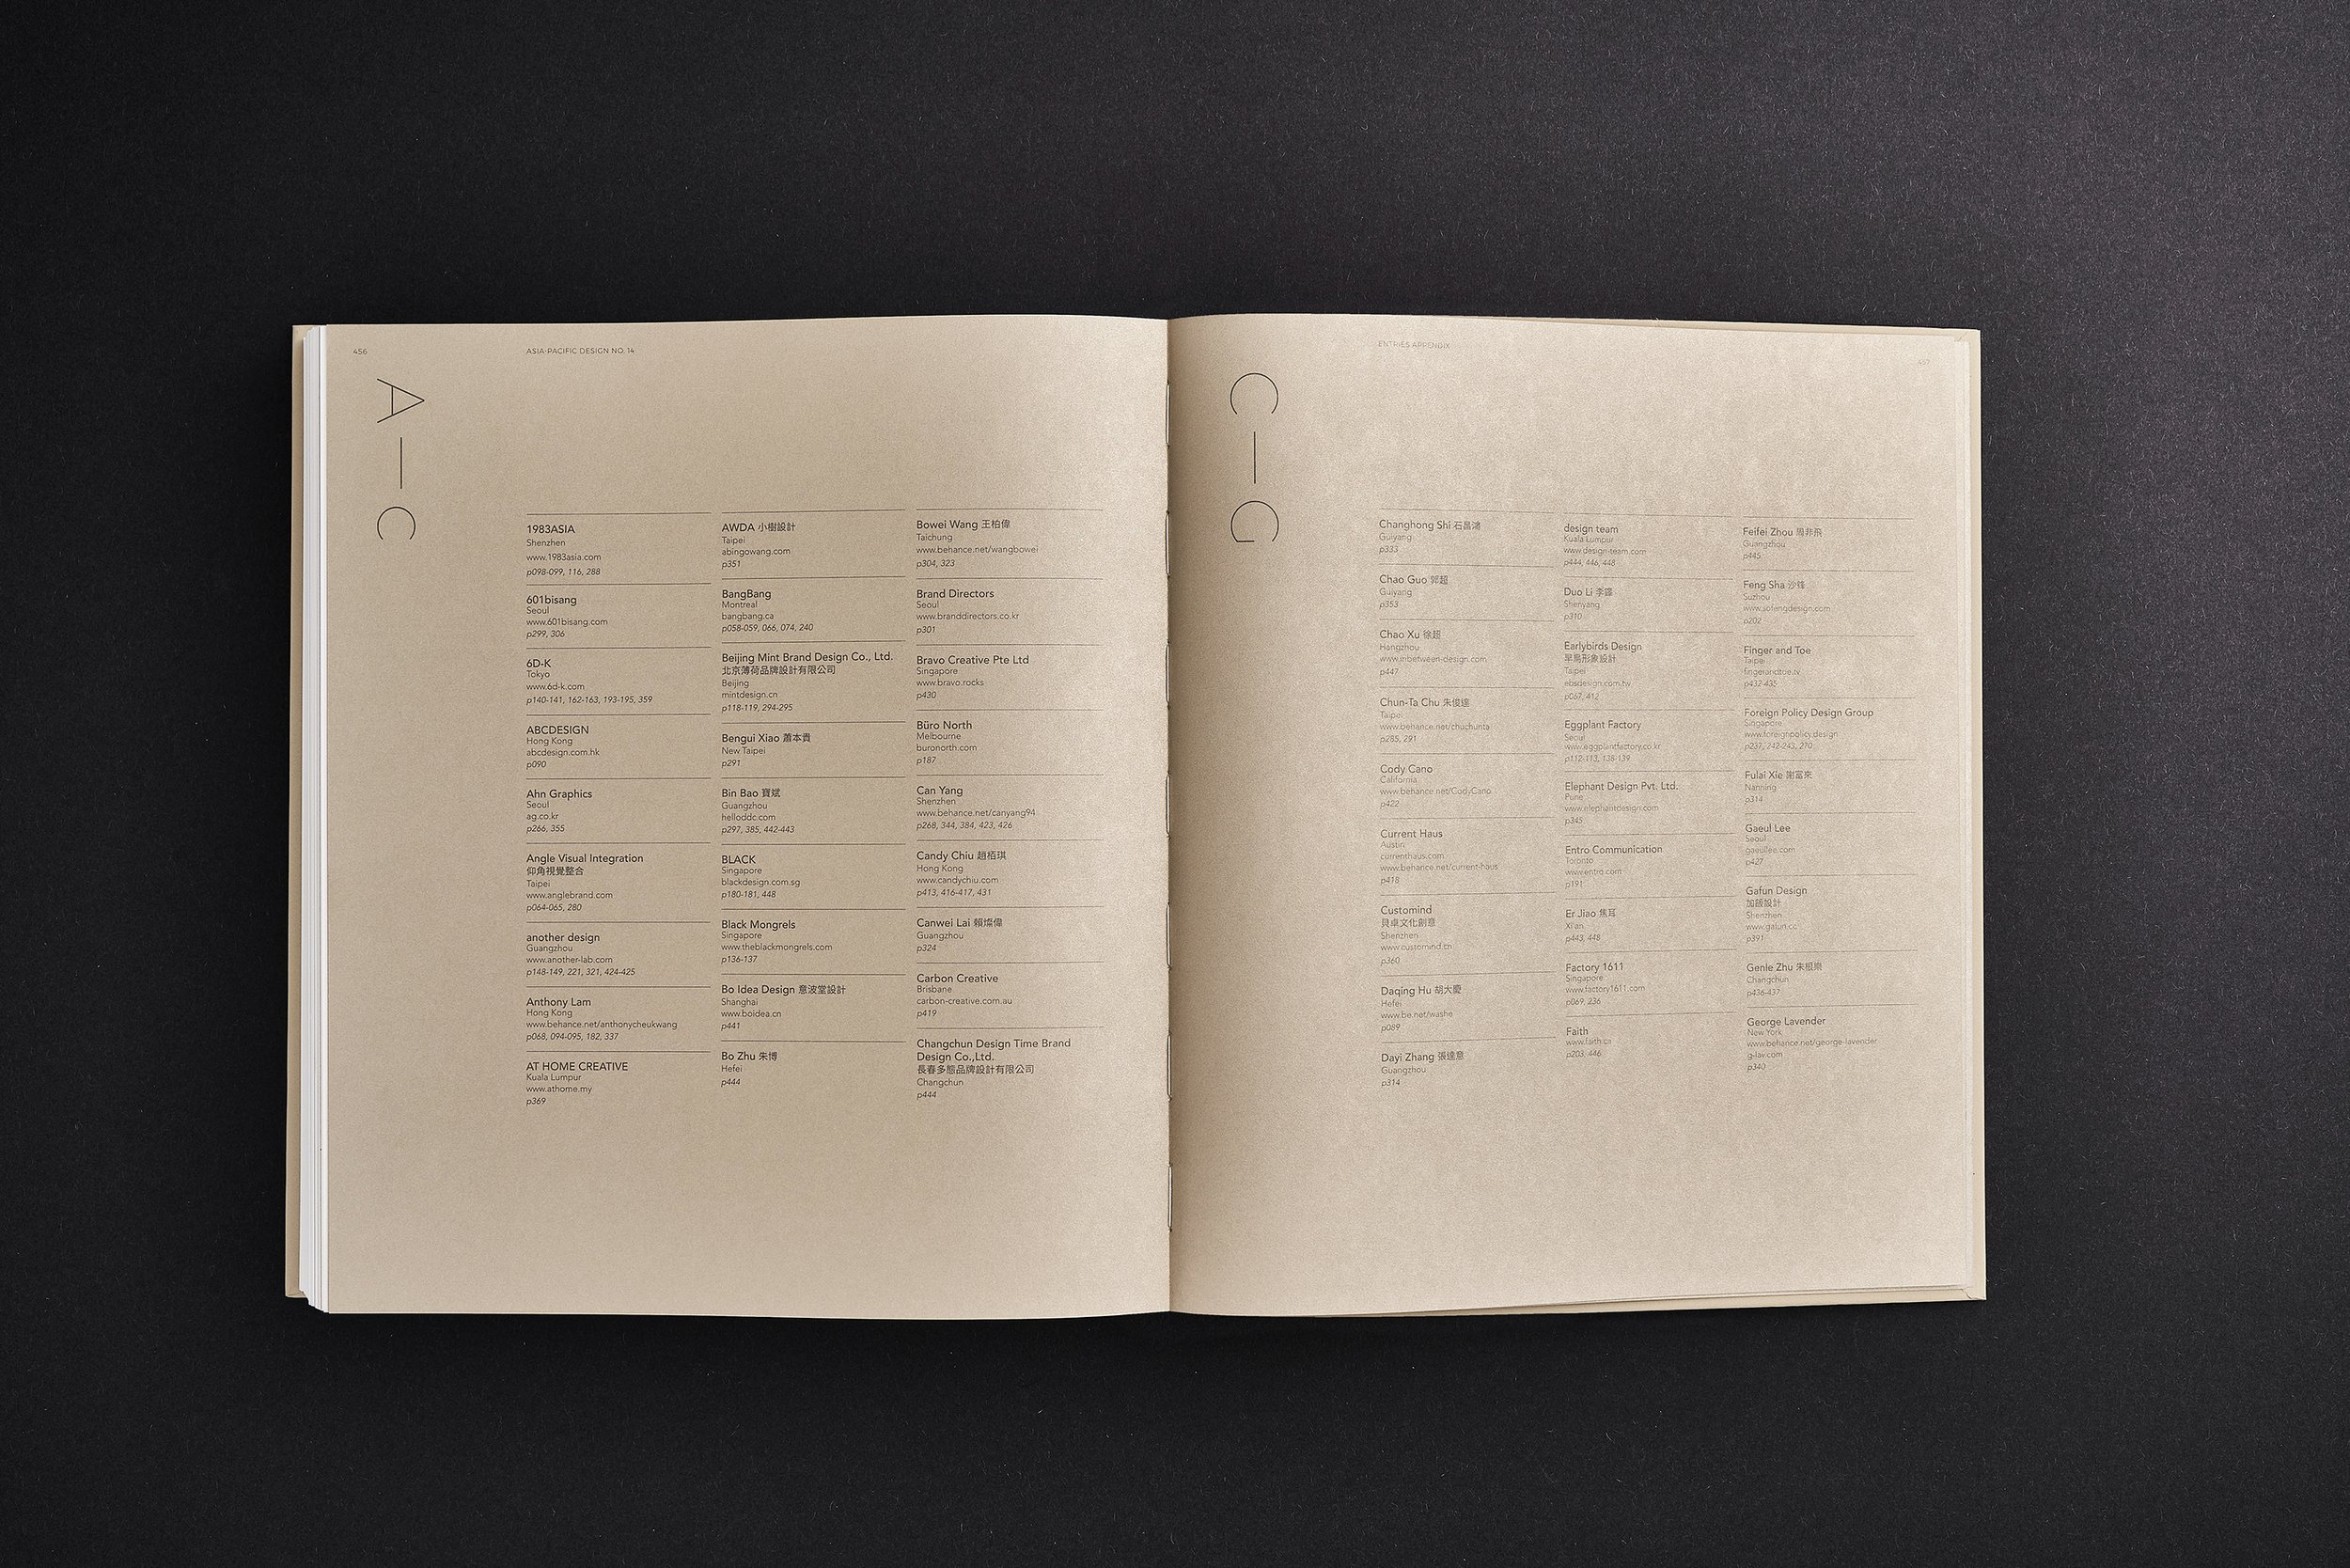 456
ASIA-PACIFIC DESIGN NO. 14
A — C
1983ASIA
Shenzhen
www.1983asia.com
p098-099, 116, 288
601bisang
Seoul
www.601bisang.com
p299, 306
6D-K
Tokyo
www.6d-k.com
p140-141, 162-163, 193-195, 359
ABCDESIGN
Hong Kong
abcdesign.com.hk
p090
Ahn Graphics
Seoul
ag.co.kr
p266, 355
Angle Visual Integration
仰角視覺整合
Taipei
www.anglebrand.com
p064-065, 280
another design
Guangzhou
www.another-lab.com
p148-149, 221, 321, 424-425
Anthony Lam
Hong Kong
www.behance.net/anthonycheukwang
p068, 094-095, 182, 337
AT HOME CREATIVE
Kuala Lumpur
www.athome.my
p369
AWDA 小樹設計
Taipei
abingowang.com
p351
BangBang
Montreal
bangbang.ca
p058-059, 066, 074, 240
Beijing Mint Brand Design Co., Ltd.
北京薄荷品牌設計有限公司
Beijing
mintdesign.cn
p118-119, 294-295
Bengui Xiao 蕭本貴
New Taipei
p291
Bin Bao 寶斌
Guangzhou
helloddc.com
p297, 385, 442-443
BLACK
Singapore
blackdesign.com.sg
p180-181, 448
Black Mongrels
Singapore
www.theblackmongrels.com
p136-137
Bo Idea Design 意波堂設計
Shanghai
www.boidea.cn
p441
Bo Zhu 朱博
Hefei
p444
Bowei Wang 王柏偉
Taichung
www.behance.net/wangbowei
p304, 323
Brand Directors
Seoul
www.branddirectors.co.kr
p301
Bravo Creative Pte Ltd
Singapore
www.bravo.rocks
p430
Büro North
Melbourne
buronorth.com
p187
Can Yang
Shenzhen
www.behance.net/canyang94
p268, 344, 384, 423, 426
Candy Chiu 趙栢琪
Hong Kong
www.candychiu.com
p413, 416-417, 431
Canwei Lai 賴燦偉
Guangzhou
p324
Carbon Creative
Brisbane
carbon-creative.com.au
p419
Changchun Design Time Brand
Design Co.,Ltd.
長春多態品牌設計有限公司
Changchun
p444
ENTRIES APPENDIX
457
C — G
Changhong Shi 石昌鴻
Guiyang
p333
Chao Guo 郭超
Guiyang
p353
Chao Xu 徐超
Hangzhou
www.inbetween-design.com
p447
Chun-Ta Chu 朱俊達
Taipei
www.behance.net/chuchunta
p285, 291
Cody Cano
California
www.behance.net/CodyCano
p422
Current Haus
Austin
currenthaus.com
www.behance.net/current-haus
p418
Customind
貝卓文化創意
Shenzhen
www.customind.cn
p360
Daqing Hu 胡大慶
Hefei
www.be.net/washe
p089
Dayi Zhang 張達意
Guangzhou
p314
design team
Kuala Lumpur
www.design-team.com
p444, 446, 448
Duo Li 李鐸
Shenyang
p310
Earlybirds Design
早鳥形象設計
Taipei
ebsdesign.com.tw
p067, 412
Eggplant Factory
Seoul
www.eggplantfactory.co.kr
p112-113, 138-139
Elephant Design Pvt. Ltd.
Pune
www.elephantdesign.com
p345
Entro Communication
Toronto
www.entro.com
p191
Er Jiao 焦耳
Xi'an
p443, 448
Factory 1611
Singapore
www.factory1611.com
p069, 236
Faith
www.faith.ca
p203, 446
Feifei Zhou 周非飛
Guangzhou
p445
Feng Sha 沙鋒
Suzhou
www.sofengdesign.com
p202
Finger and Toe
Taipei
fingerandtoe.tv
p432-435
Foreign Policy Design Group
Singapore
www.foreignpolicy.design
p237, 242-243, 270
Fulai Xie 謝富來
Nanning
p314
Gaeul Lee
Seoul
gaeullee.com
p427
Gafun Design
加飯設計
Shenzhen
www.gafun.cc
p391
Genle Zhu 朱根樂
Changchun
p436-437
George Lavender
New York
www.behance.net/george-lavender
g-lav.com
p340